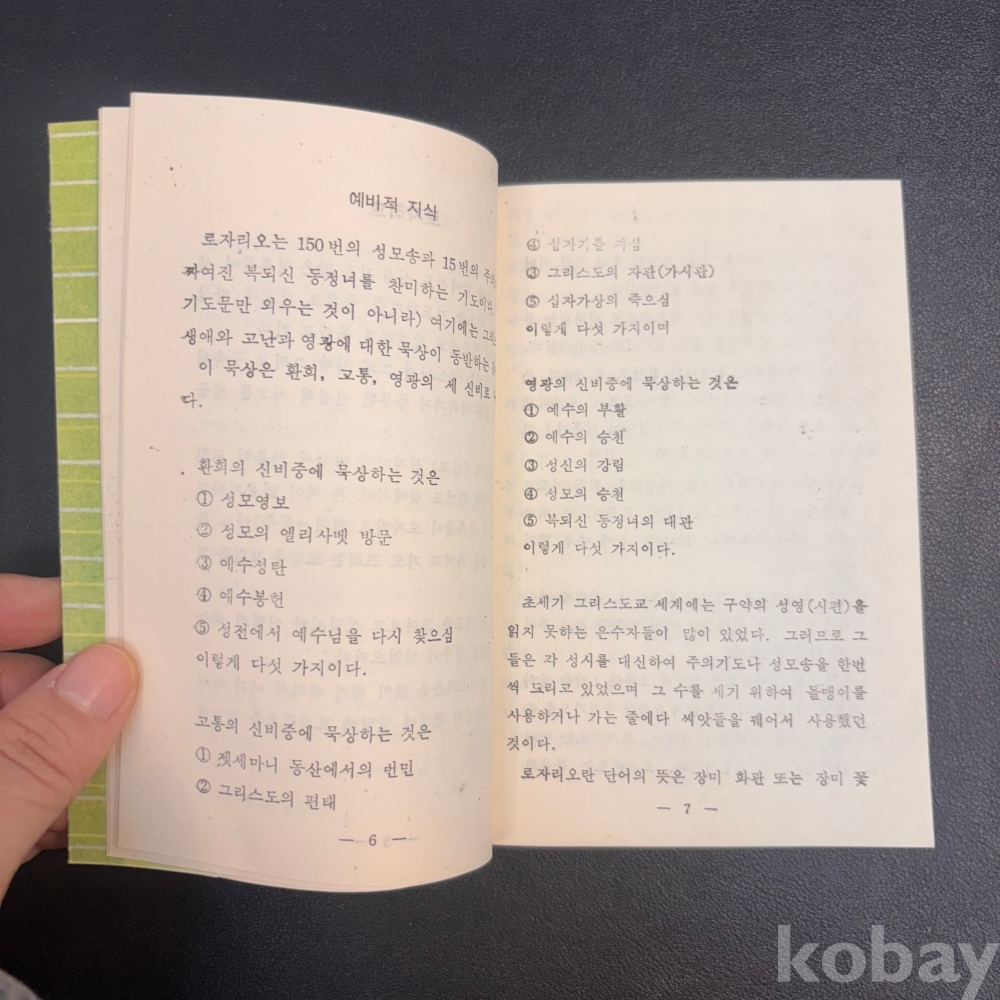 예비적 지식
로자리오는 150번의 성모송과 15번의
짜여진 복되신 동정녀를 찬미하는 기도이다.
기도문만 외우는 것이 아니라) 여기에는
생애와 고난과 영광에 대한 묵상이 동반하는
이 묵상은 환희, 고통, 영광의 세 신비로
다.
환희의 신비중에 묵상하는 것은
① 성모영보
② 성모의 엘리사벳 방문
③ 예수성탄
④ 예수봉헌
⑤ 성전에서 예수님을 다시 찾으심
이렇게 다섯 가지이다.
고통의 신비중에 묵상하는 것은
① 겟세마니 동산에서의 번민
② 그리스도의 편태
— 6 —
④ 십자기를 지심
③ 그리스도의 자관(가시관)
⑤ 십자가상의 죽으심
이렇게 다섯 가지이며
영광의 신비중에 묵상하는 것은
① 예수의 부활
② 예수의 승천
③ 성신의 강림
④ 성모의 승천
⑤ 복되신 동정녀의 대관
이렇게 다섯 가지이다.
초세기 그리스도교 세계에는 구약의 성영(시편)을
읽지 못하는 은수자들이 많이 있었다. 그러므로 그
들은 각 성시를 대신하여 주의기도나 성모송을 한번
씩 드리고 있었으며 그 수를 세기 위하여 돌맹이를
사용하거나 가는 줄에다 씨앗들을 꿰어서 사용했던
것이다.
로자리오란 단어의 뜻은 장미 화관 또는 장미 꽃
— 7 —
kobay